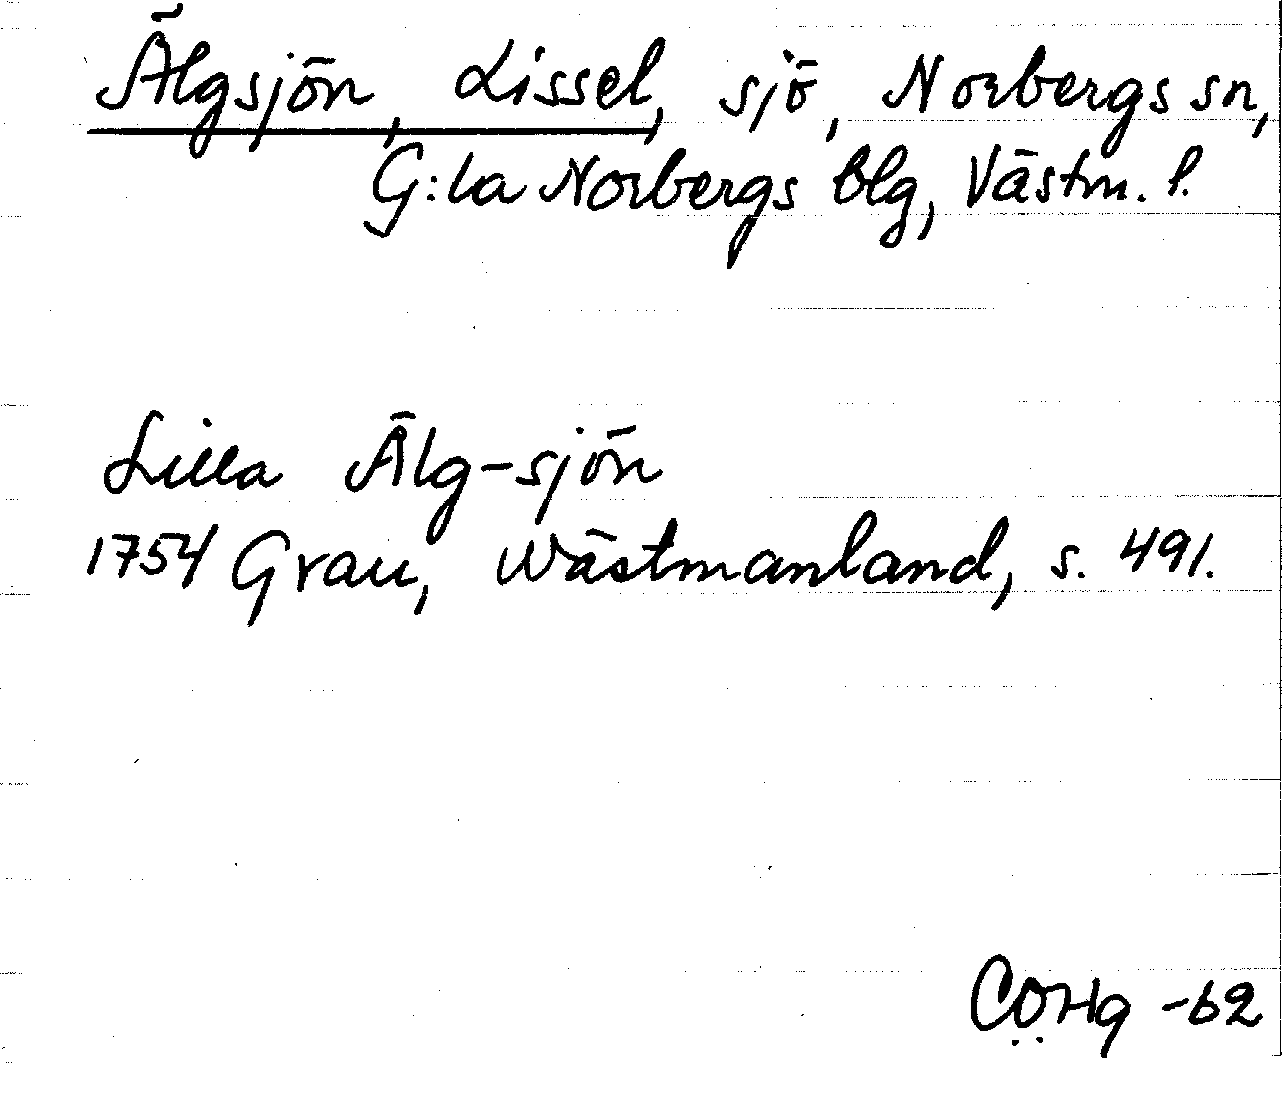 Älgsjön, Lissel, sjö, Norbergs sn,
G:la Norbergs blg, Västm. l.
Lilla Älg-sjön
1754 Grau, Wästmanland, s. 491.
CÖHg -62